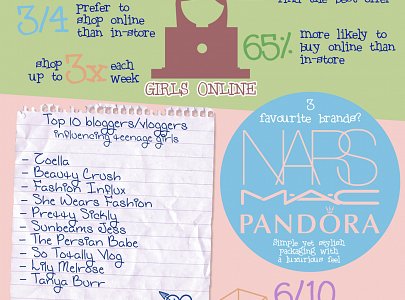 find the best offer
3/4 prefer to
shop online
than in-store
65% more likely to
buy online than
in-store
shop
up to 3x each
week
GIRLS ONLINE
Top 10 bloggers/vloggers
influencing teenage girls
- Zoella
- Beauty Crush
- Fashion Influx
- She Wears Fashion
- Pretty Sickly
- Sunbeams Jess
- The Persian Babe
- So Totally Vlog
- Lily Melrose
- Tanya Burr
3
favourite brands?
NARS
MAC
PANDORA
Simple yet stylish
packaging with
a luxurious feel
6/10